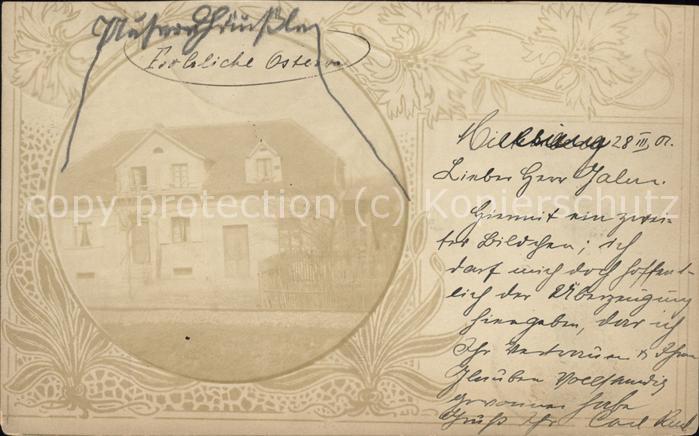 Fröhliche Ostern
28 III 01.
Lieber Herr
Hiermit ein zwei-
tes Bildchen; ich
darf mich doch hoffent-
lich der Überzeugung
hingeben, das ich
Ihr Vertrauen & Ihren
Glauben vollständig
gewonnen habe
Gruß Ihr Carl
copyright (c) Kopierschutz